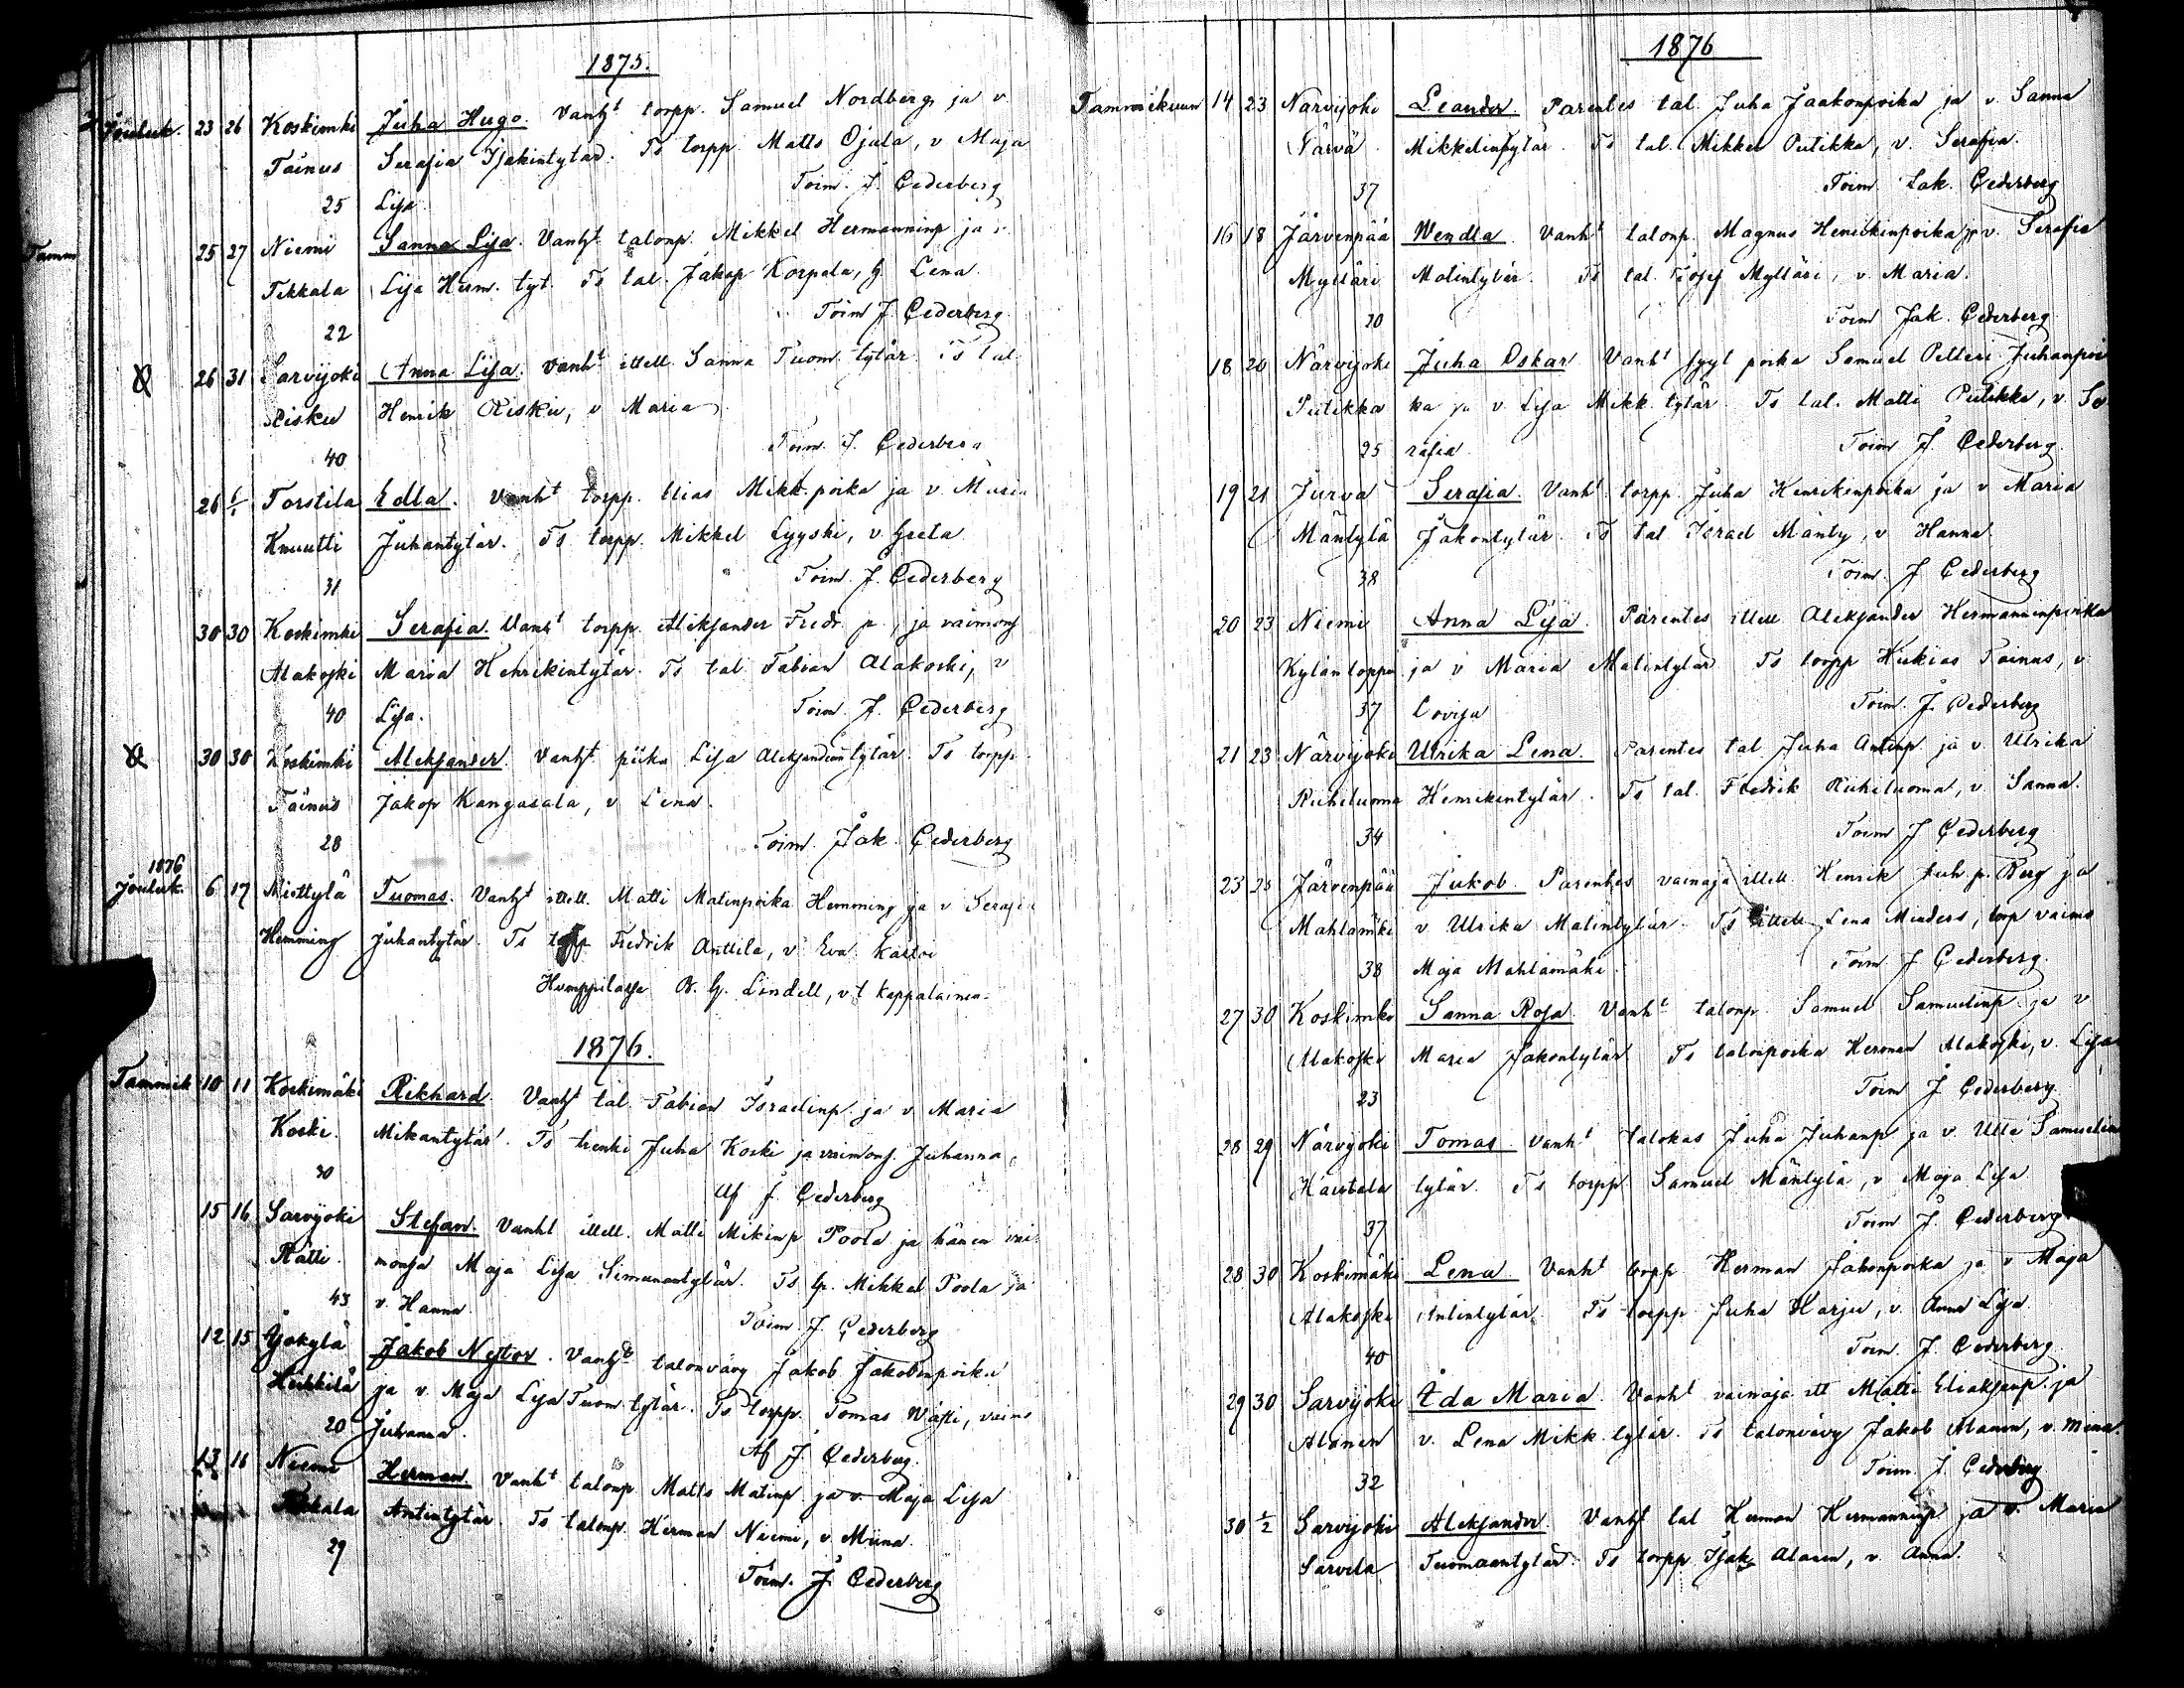 1875.
Jouluk. 23 26 Koskimki Juha Hugo. Vanht torpp. Samuel Nordberg ja v.
Tainus Serafia Isakintytär. Ts torpp. Matts Ojala, v Maja
25 Lisa. Toim. J. Cederberg
25 27 Niemi Sanna Lisa. Vanht talonp. Mikkel Hermanninp ja v.
Tekkala Lisa Herm. tyt. Ts tal. Jakop Korpela, h. Lena.
22 Toim J. Cederberg
26 31 Sarvijoki Anna Lisa. Vanht itell. Sanna Tuom. tytär. Ts tal.
Risku Henrik Risku, v Maria
40 Toim. J. Cederberg
26 1/1 Torstila Edla. Vanht torpp. Elias Mikk. poika ja v. Maria
Knuutti Juhantytär. Ts torpp. Mikkel Lyyski, v. Greta
31 Toim. J. Cederberg
30 30 Koskimki Serafia. Vanht torpp. Aleksander Fredr. p., ja vaimons
Alakoski Maria Henrikintytär. Ts tal. Fabian Alakoski, v
40 Lisa. Toim. J. Cederberg
30 30 Koskimki Aleksander. Vanht piika Lisa Aleksanderintytär. Ts torpp.
Tainus Jakop Kangasala, v Lena.
28 Toim. Jak. Cederberg
1876
Jouluk. 6 17 Miettylä Tuomas. Vanht itell. Matti Matinpoika Hemming ja v Serafia
Hemming Juhantytär. Ts torpp Fredrik Anttila, v Eva. Kastoi
Humppilassa B. G. Lindell, v t Kappalainen.
1876.
Tammik 10 11 Koskimäki Rikhard. Vanht tal. Fabian Israelinp. ja v. Maria
Koski. Mikantytär. Ts trenki Juha Koski ja vaimons. Juhanna.
30 Af J. Cederberg
15 16 Sarvijoki Stefan. Vanht itell. Matti Mikinp Poola ja hänen vai
Rätti. monsa Maja Lisa Simunantytär. Ts tp. Mikkel Poola ja
43 v. Hanna. Toim J. Cederberg
12 15 Yökylä Jakob Nestor. Vanht talonvävy Jakob Jakobinpoika
Heikkilä ja v. Maja Lisa Tuom. tytär. Ts torpp. Tomas Wästi, vaimo
20 Juhanna. Af J. Cederberg.
13 16 Niemi Herman. Vanht talonp Matts Matinp. ja v. Maja Lisa
Tekkala Antintytär. Ts talonp. Herman Niemi, v. Miina.
29 Toim. J. Cederberg
1876
Tammikuun 14 23 Närvijoki Leander. Parentes tal. Juha Jaakonpoika ja v. Sanna
Närvä. Mikkelintytär. Ts tal. Mikkel Putikka, v. Serafia.
37 Toim. Jak. Cederberg
16 18 Järvenpää Wendla. Vanht talonp. Magnus Henrikinpoika ja v. Serafia
Mylläri Matintytär. Ts tal. Josef Mylläri, v. Maria.
20 Toim Jak. Cederberg
18 20 Närvijoki Juha Oskar Vanht syyt. poika Samuel Petteri Juhanpoi
Putikka ka ja v. Lisa Mikk. tytär. Ts tal. Matti Putikka, v. Se
25 rafia Toim J. Cederberg
19 21 Jurva Serafia. Vanht. torpp. Juha Henrikinpoika ja v Maria
Mäntylä Jakontytär. Ts tal Israel Mänty, v Hanna
38 Toim. J Cederberg
20 23 Niemi Anna Lisa. Parentes itell Aleksander Hermanninpoika
Kylänloppa ja v Maria Matintytär Ts torpp Hiskias Tainus, v
37 Lovisa Toim. J. Cederberg
21 23 Närvijoki Ulrika Lena. Parentes tal Juha Antinp. ja v. Ulrika
Riihiluoma Henrikintytär. Ts tal. Fredrik Riihiluoma, v. Sanna.
34 Toim J Cederberg
23 25 Järvenpää Jakob. Parentes vainaja itell. Henrik Juh. p. Berg ja
Mahlamäki v Ulrika Matintytär. Ts itell. Lena Minders, torp vaimo
38 Maja Mahlamäki. Toim J Cederberg.
27 30 Koskimki Sanna Rosa Vanht talonp Samuel Samuelinp ja v
Alakoski Maria Jakontytär Ts talonpoika Herman Alakoski, v. Lisa
23 Toim J. Cederberg
28 29 Närvijoki Tomas Vanht talokas Juha Juhanp ja v. Ulla Samuelin
Haistala tytär. Ts torpp Samuel Mäntylä, v Maja Lisa
37 Toim J. Cederberg
28 30 Koskimäki Lena Vanht torpp Herman Jakonpoika ja v Maja
Alakoski Antintytär. Ts torpp Juha Harju, v. Anna Lisa
40 Toim J. Cederberg
29 30 Sarvijoki Ada Maria. Vanht vainaja itl Matti Eliaksenp. ja
Alanen v. Lena Mikk. tytär. Ts talonvävy Jakob Alanen, v. Mina.
32 Toim. J. Cederberg
30 1/2 Sarvijoki Aleksander. Vanht tal Herman Hermanninp ja v. Maria
Sarvela Tuomaantytär. Ts torpp Isak Alanen, v. Anna.